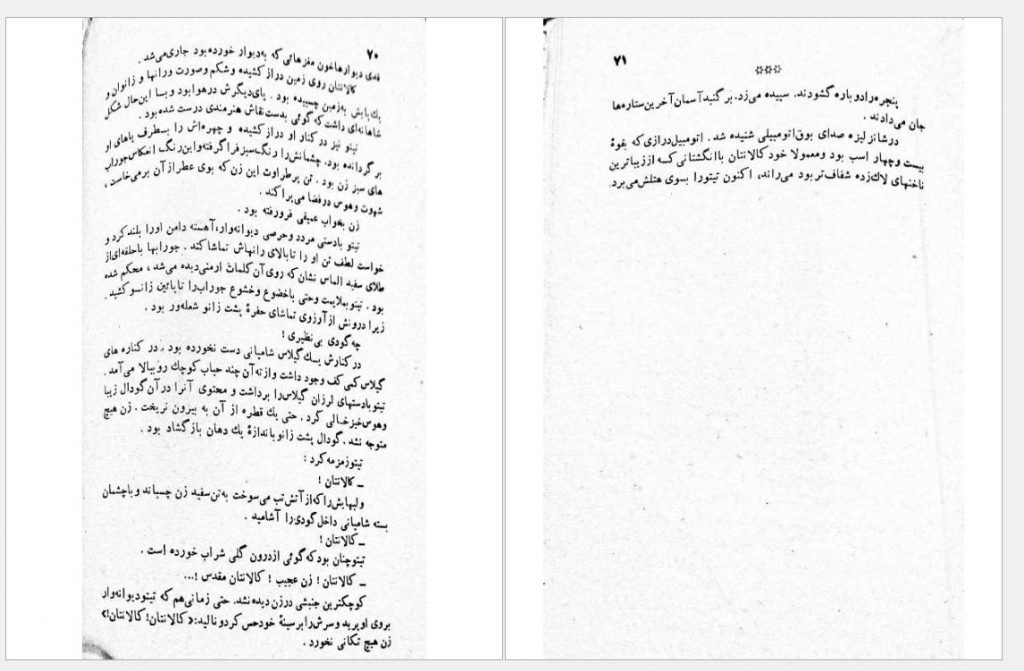 ۷۰
قدی دیوارها خون مغزهائی که به‌دیوار خورده بود جاری می‌شد .
کالانتان روی زمین دراز کشیده و شکم وصورت ورانها و زانوان و
یك پایش به‌زمین چسبیده بود . پای‌دیگرش درهوا بود و بسا این‌حال شکل
شاهانه‌ای داشت که گوئی بدست نقاش هنرمندی درست شده بود .
تیتو نیز در کنار او دراز کشیده و چهره‌اش را بسطرف پاهای او
بر گردانده بود. چشمانش را رنگ سبز فرا گرفته واین رنگ انعکاس جوراب
های سبز زن بود . تن پرطراوت این زن که بوی عطر از آن برمی‌خاست ،
شهوت وهوس درفضا می‌پراکند .
زن بخواب عمیقی فرورفته بود .
تیتو بادستی مردد وحرصی دیوانه‌وار، آهسته دامن اورا بلند کرد و
خواست لطف تن او را تابالای رانهاش تماشا کند . جورابها باحلقه‌ای از
طلای سفید الماس نشان که روی آن کلمات ارمنی دیده می‌شد ، محکم شده
بود . تیتو بملایمت وحتی باخضوع وخشوع جوراب را تا پائین زانسو کشید .
زیرا درونش از آرزوی تماشای حفرهٔ پشت زانو شعله‌ور بود .
چه گودی بی‌نظیری !
در کنارش یسك گیلاس شامپانی دست نخورده بود . در کناره های
گیلاس کمی کف وجود داشت وازته آن چند حباب کوچك رو ببالا می‌آمد .
تیتو بادستهای لرزان گیلاس را برداشت و محتوی آنرا در آن گودال زیبا
وهوس‌خیز خالی کرد . حتی یك قطره از آن به بیرون نریخت . زن هیچ
متوجه نشد . گودال پشت زانو باندازهٔ یك دهان باز گشاد بود .
تیتو زمزمه کرد :
ــ کالانتان !
ولبهایش را که از آتش تب می‌سوخت به‌تن سفید زن چسباند و باچشمان
بسته شامپانی داخل گودی را آشامید .
ــ کالانتان !
تیتو چنان بود که گوئی از درون گلی شراب خورده است .
ــ کالانتان ! زن عجیب ! کالانتان مقدس !...
کوچکترین جنبشی درزن دیده نشد. حتی زمانی هم که تیتو دیوانه‌وار
بروی او پرید وسرش را برسینهٔ خود حس کرد و نالید: «کالانتان! کالانتان!»
زن هیچ تکانی نخورد .
۷۱
پنجره را دوباره گشودند. سپیده می‌زد. بر گنبد آسمان آخرین ستاره‌ها
جان می‌دادند .
در شانزلیزه صدای بوق اتومبیلی شنیده شد . اتومبیل درازی که بقوهٔ
بیست و چهار اسب بود ومعمولا خود کالانتان با انگشتانی کسه از زیباترین
ناخنهای لاك‌زده شفاف‌تر بود می‌راند، اکنون تیتو را بسوی هتلش می‌برد.